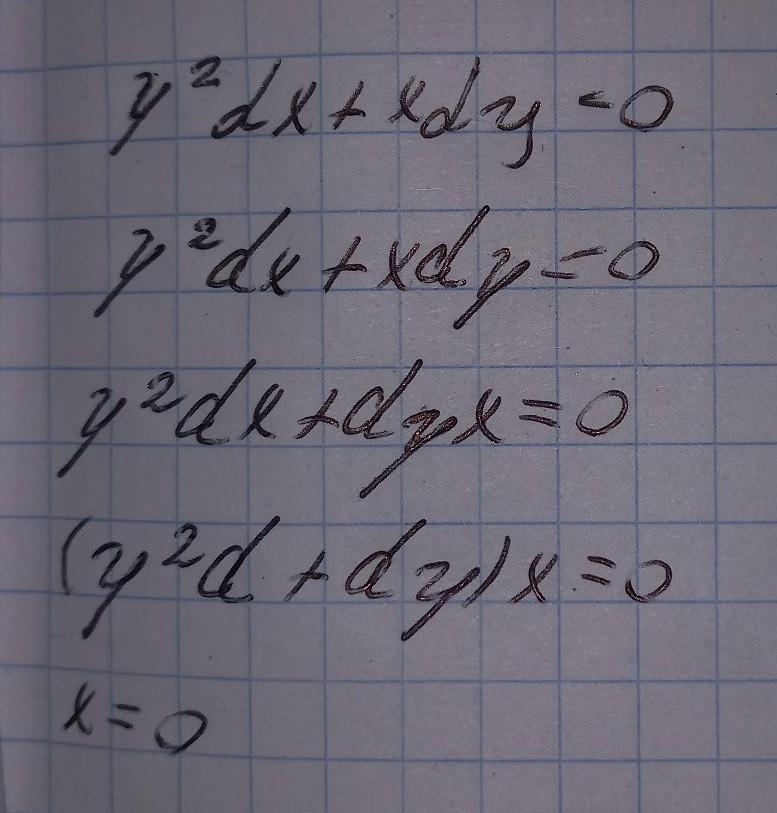 y²dx+xdy=0
y²dx+xdy=0
y²dx+dyx=0
(y²d+dy)x=0
x=0